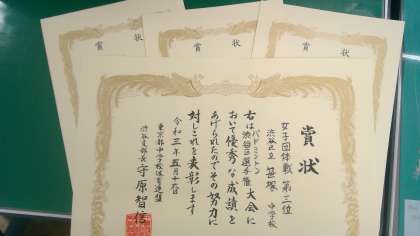 賞状
賞状
賞状
賞状
女子団体戦 第三位
渋谷区立 笹塚 中学校
右はバドミントン渋谷区選手権大会に
おいて優秀な成績を
あげられたのでその努力に
対しこれを表彰します
令和三年五月十六日
東京都中学校体育連盟
渋谷支部長 守原智信